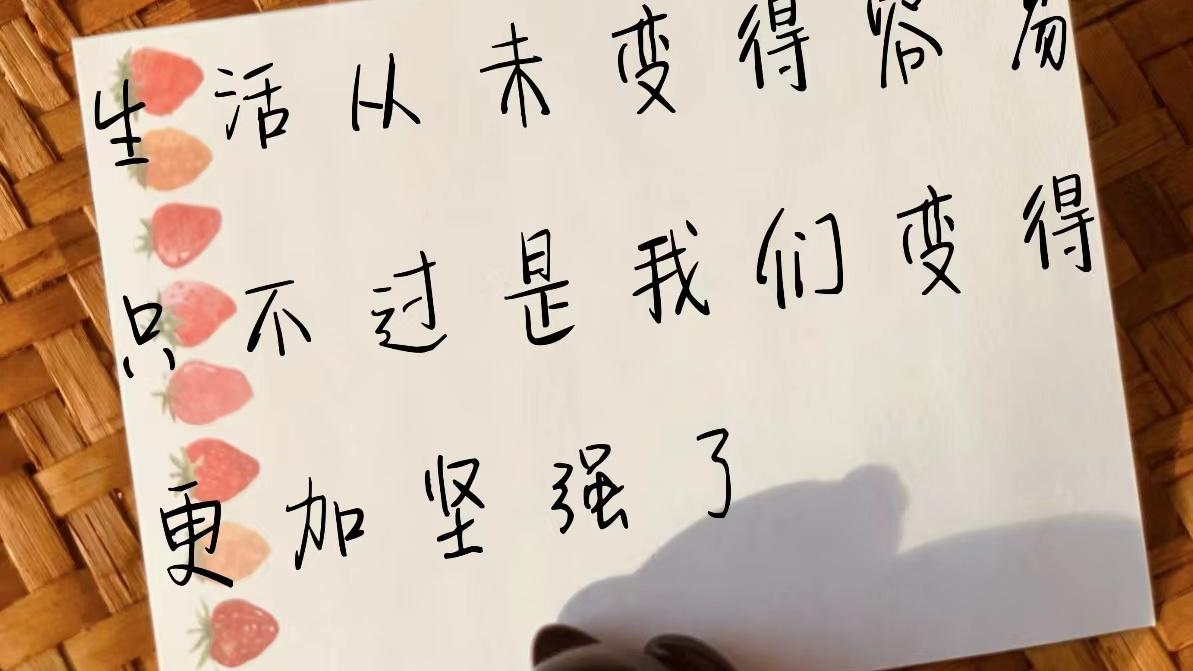 生活从未变得容易
只不过是我们变得
更加坚强了